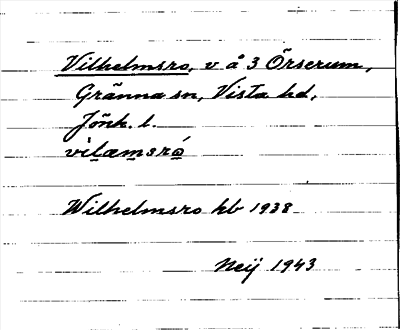 Vilhelmsro, v å 3 Örserum,
Gränna sn, Vista hd,
Jönk. l.
vilæmsró
Wilhelmsro hb 1938
Neij 1943